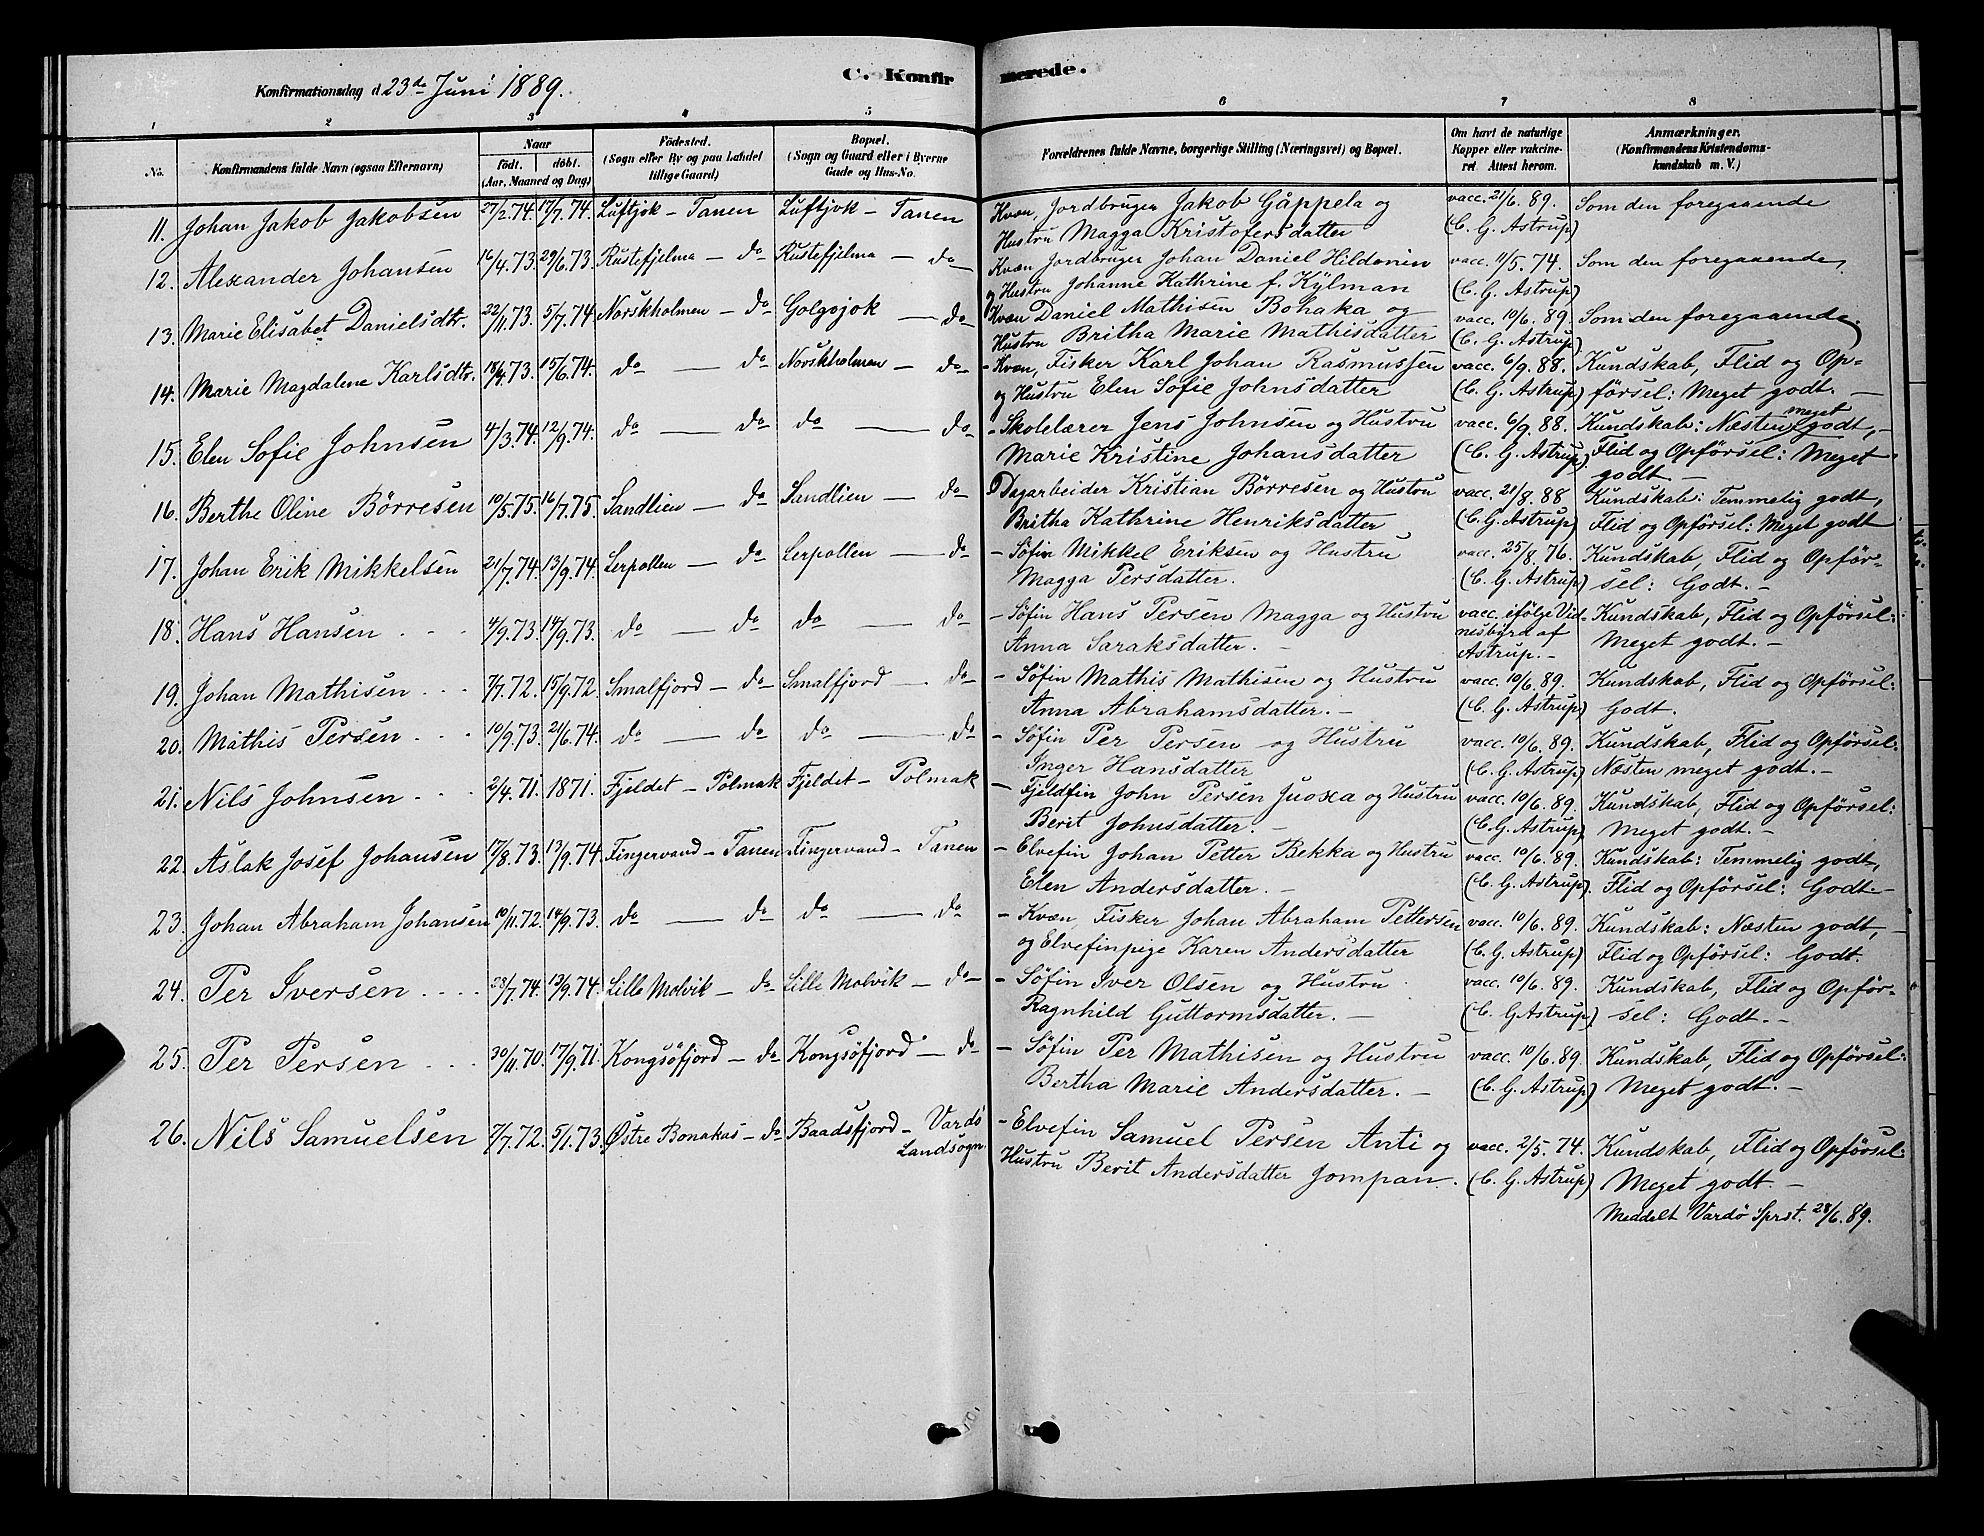 C. Konfirmerede.
Konfirmationsdag d. 23de Juni 1889.
1 2 3 4 5 6 7 8
No. Konfirmandens fulde Navn (ogsaa Efternavn) Naar födt. döbt. (Aar, Maaned og Dag) Födested. (Sogn eller By og paa Landet tillige Gaard) Bopæl. (Sogn og Gaard eller i Byerne Gade og Hus-No. Forældrenes fulde Navne, borgerlige Stilling (Næringsvei) og Bopæl. Om havt de naturlige Kopper eller vakcineret Attest herom. Anmærkninger. (Konfirmandens Kristendomskundskab m. V.)
11. Johan Jakob Jakobsen 27/2.74. 17/7.74. Luftjok – Tanen Luftjok – Tanen Kvæn, Jordbruger Jakob Gåppela og vacc. 21/6. 89. Som den foregaaende
Hustru Magga Kristofersdatter (C. G. Astrup)
12. Alexander Johansen 16/4.73. 29/6.73. Rustefjelma – do Rustefjelma – do Kvæn Jordbruger Johan Daniel Hildonin vacc. 11/5. 74. Som den foregaaende,
og Hustru Johanne Kathrine f. Kÿlman (C. G. Astrup)
13. Marie Elisabet Danielsdtr. 22/11.73. 5/7.74 Norskholmen – do Golgojok – do Kvæn Daniel Mathisen Bohaka og vacc. 10/6. 89. Som den foregaaende.
Hustru Britha Marie Mathisdatter (C. G. Astrup)
14. Marie Magdalene Karlsdtr. 18/9.73. 15/6.74. do – do Norskholmen – do – Kvæn, Fisker Karl Johan Rasmussen vacc. 6/9. 88. Kundskab, Flid og Op-
og Hustru Elen Sofie Johnsdatter (C. G. Astrup) försel: Meget godt. –
15. Elen Sofie Johnsen 4/3.74. 12/9.74. do – do do – do – Skolelærer Jens Johnsen og Hustru vacc. 6/9. 88. Kundskab: Næsten meget godt, –
Marie Kristine Johansdatter (C. G. Astrup) Flid og Opförsel: Meget
godt –
16. Berthe Oline Börresen 10/5.75. 16/7.75. Sandlien – do Sandlien – do Dagarbeider Kristian Börresen og Hustru vacc. 21/8. 88 Kundskab: Temmelig godt,
Britha Kathrine Henriksdatter (C. G. Astrup) Flid og Opförsel: Meget godt
17. Johan Erik Mikkelsen 21/7.74. 13/9.74. Lerpollen – do Lerpollen – do – Söfin Mikkel Eriksen og Hustru vacc. 25/8. 76. Kundskab, Flid og Opför-
Magga Persdatter. (C. G. Astrup) sel: Godt. –
18. Hans Hansen 4/9.73. 14/9.73. do – do do – do – Söfin Hans Persen Magga og Hustru vacc. ifölge Vid- Kundskab, Flid og Opförsel:
Anna Saraksdatter. – nesbyrd af Meget godt. –
Astrup. –
19. Johan Mathisen 7/7.72. 15/9.72 Smalfjord – do Smalfjord – do – Söfin Mathis Mathisen og Hustru vacc. 10/6. 89. Kundskab, Flid og Opförsel:
Anna Abrahamsdatter. – (C. G. Astrup) Godt.
20. Mathis Persen 10/9.73. 21/6.74. do – do do – do – Söfin Per Persen og Hustru vacc. 10/6. 89. Kundskab, Flid og Opförsel:
Inger Hansdatter (C. G. Astrup) Næsten meget godt. –
21. Nils Johnsen 2/4.71. 1871. Fjeldet – Polmak Fjeldet – Polmak – Fjeldfin John Persen Juoxa og Hustru vacc. 10/6. 89. Kundskab, Flid og Opförsel:
Berit Johnsdatter. – (C. G. Astrup) Meget godt. –
22. Aslak Josef Johansen 17/8.73. 13/9.74. Fingervand – Tanen Fingervand – Tanen – Elvefin Johan Petter Bekka og Hustru vacc. 10/6. 89. Kundskab: Temmelig godt,
Elen Andersdatter. – (C. G. Astrup). Flid og Opförsel: Godt. –
23. Johan Abraham Johansen 10/11.72. 14/9.73. do – do do – do – Kvæn, Fisker Johan Abraham Pettersen vacc. 10/6. 89. Kundskab: Næsten godt, –
og Elvefinpige Karen Andersdatter (C. G. Astrup) Flid og Opförsel: Godt.
24. Per Iversen 28/7.74. 13/9.74. Lille Molvik – do Lille Molvik – do – Söfin Iver Olsen og Hustru vacc. 10/6. 89. Kundskab, Flid og Opför-
Ragnhild Guttormsdatter. – (C. G Astrup) sel: Godt. –
25. Per Persen 30/11.70. 17/9.71. Kongsöfjord – do Kongsöfjord – do – Söfin Per Mathisen og Hustru vacc. 10/6. 89. Kundskab, Flid og Opförsel:
Bertha Marie Andersdatter. – (C. G. Astrup) Meget godt. –
26. Nils Samuelsen 7/7.72. 5/1.73. Östre Bonakas – do Baadsfjord – Vardö – Elvefin Samuel Persen Anti og vacc. 2/5. 74. Kundskab, Flid og Opförsel:
Landsogn Hustru Berit Andersdatter Jompan. (C. G. Astrup) Meget godt. –
Meddelt Vardö Sprst. 28/6. 89.